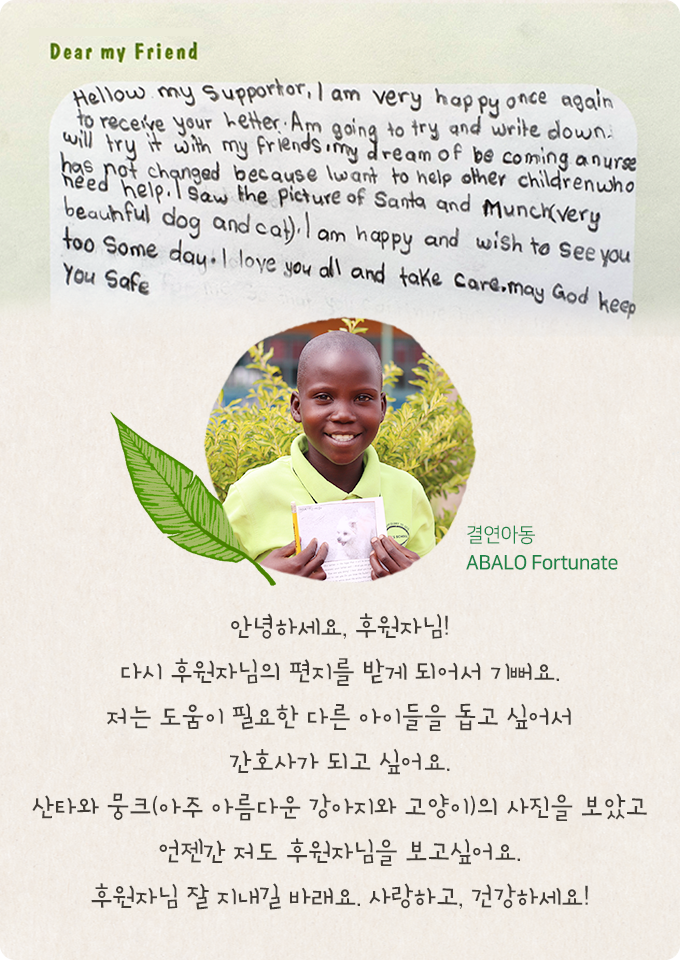 Dear my Friend
Hellow my supportor, I am very happy once again
to receive your letter. Am going to try and write down.
will try it with my friends, my dream of be coming a nurse
has not changed because I want to help other children who
need help. I saw the picture of Santa and Munch(very
beautiful dog and cat). I am happy and wish to see you
too some day. I love you all and take care. may God keep
you safe
결연아동
ABALO Fortunate
안녕하세요, 후원자님!
다시 후원자님의 편지를 받게 되어서 기뻐요.
저는 도움이 필요한 다른 아이들을 돕고 싶어서
간호사가 되고 싶어요.
산타와 뭉크(아주 아름다운 강아지와 고양이)의 사진을 보았고
언젠간 저도 후원자님을 보고싶어요.
후원자님 잘 지내길 바래요. 사랑하고, 건강하세요!